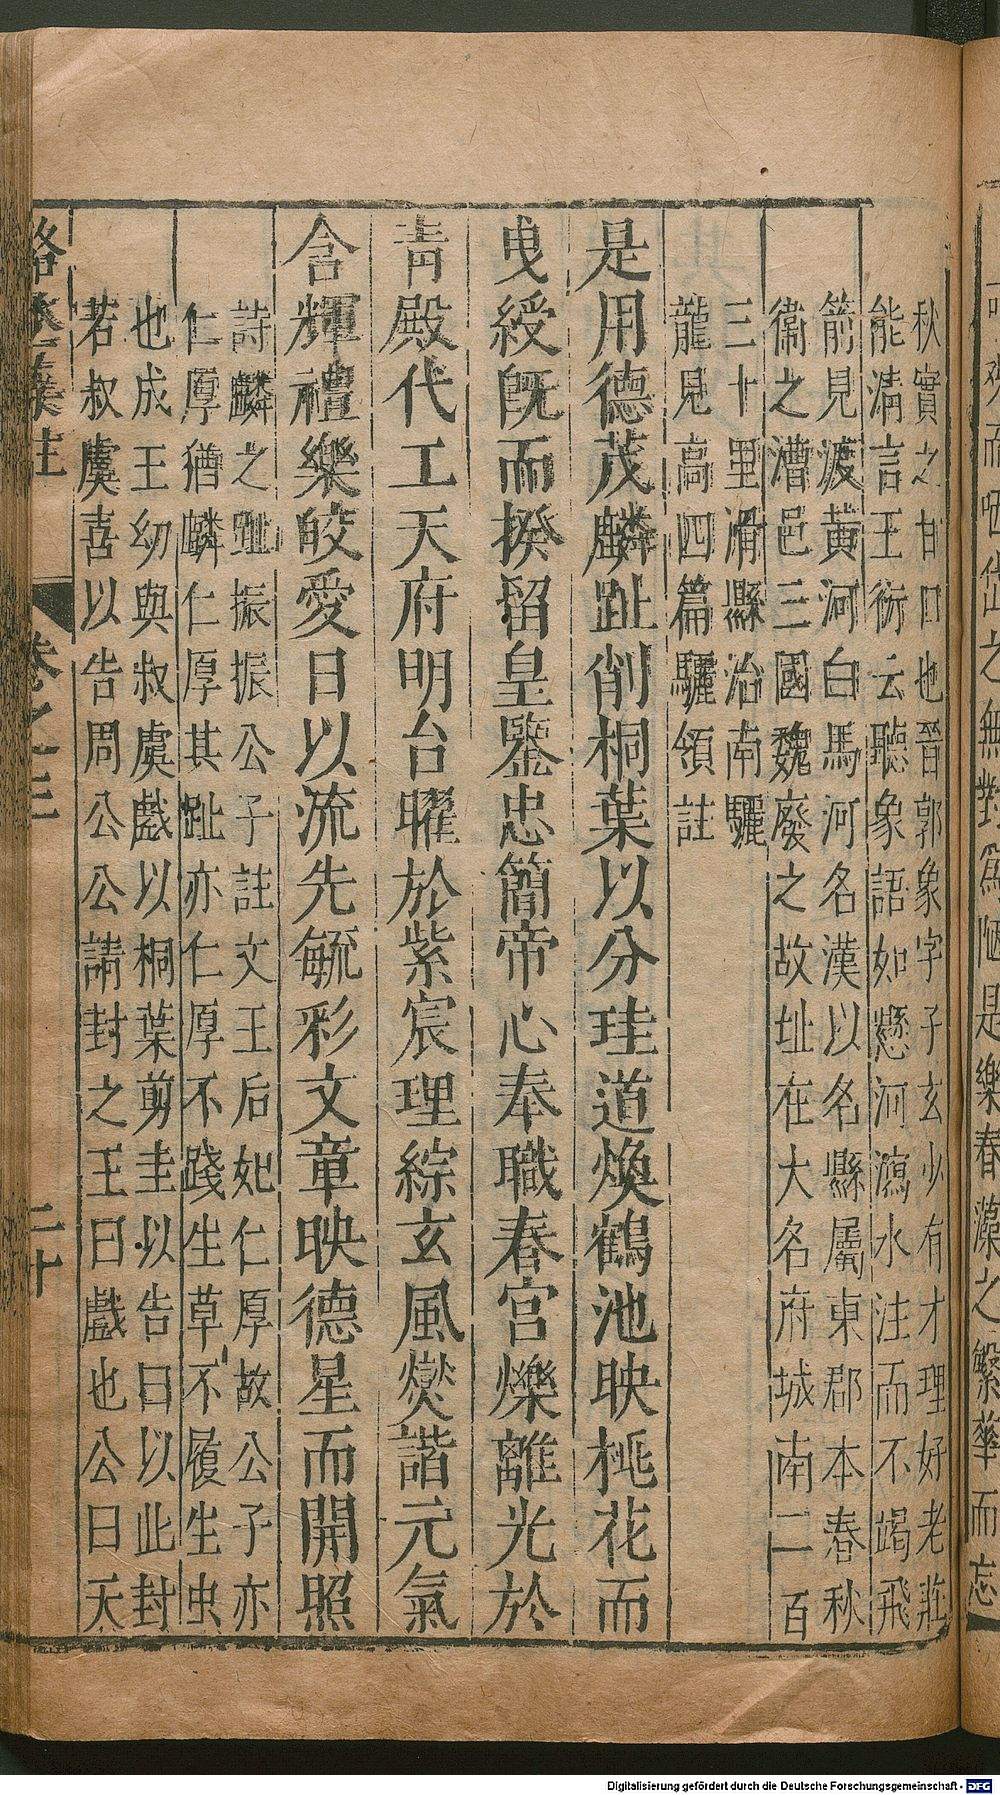 秋實之甘口也晉郭象字子玄少有才理好老莊
能淸言王衍云聽象語如懸河瀉水注而不竭飛
箭見渡黃河白馬河名漢以名縣屬東郡本春秋
衞之漕邑三國魏廢之故址在大名府城南二百
三十里滑縣治南驪
龍見高四篇驪領註
是用德茂麟趾削桐葉以分珪道煥鶴池映桃花而
曳綬旣而揆留皇鑒忠簡帝心奉職春宮爍離光於
靑殿代工天府明台曜於紫宸理綜玄風爕諧元氣
含輝禮樂皎愛日以流先毓彩文章映德星而開照
詩麟之趾振振公子註文王后妃仁厚故公子亦
仁厚猶麟仁厚其趾亦仁厚不踐生草不履生虫
也成王幼與叔虞戲以桐葉剪圭以告曰以此封
若叔虞喜以告周公公請封之王曰戲也公曰天
駱丞集註 卷之三 二十
而 之無對爲 是樂春藻之繁華而忘
Digitalisierung gefördert durch die Deutsche Forschungsgemeinschaft - DFG